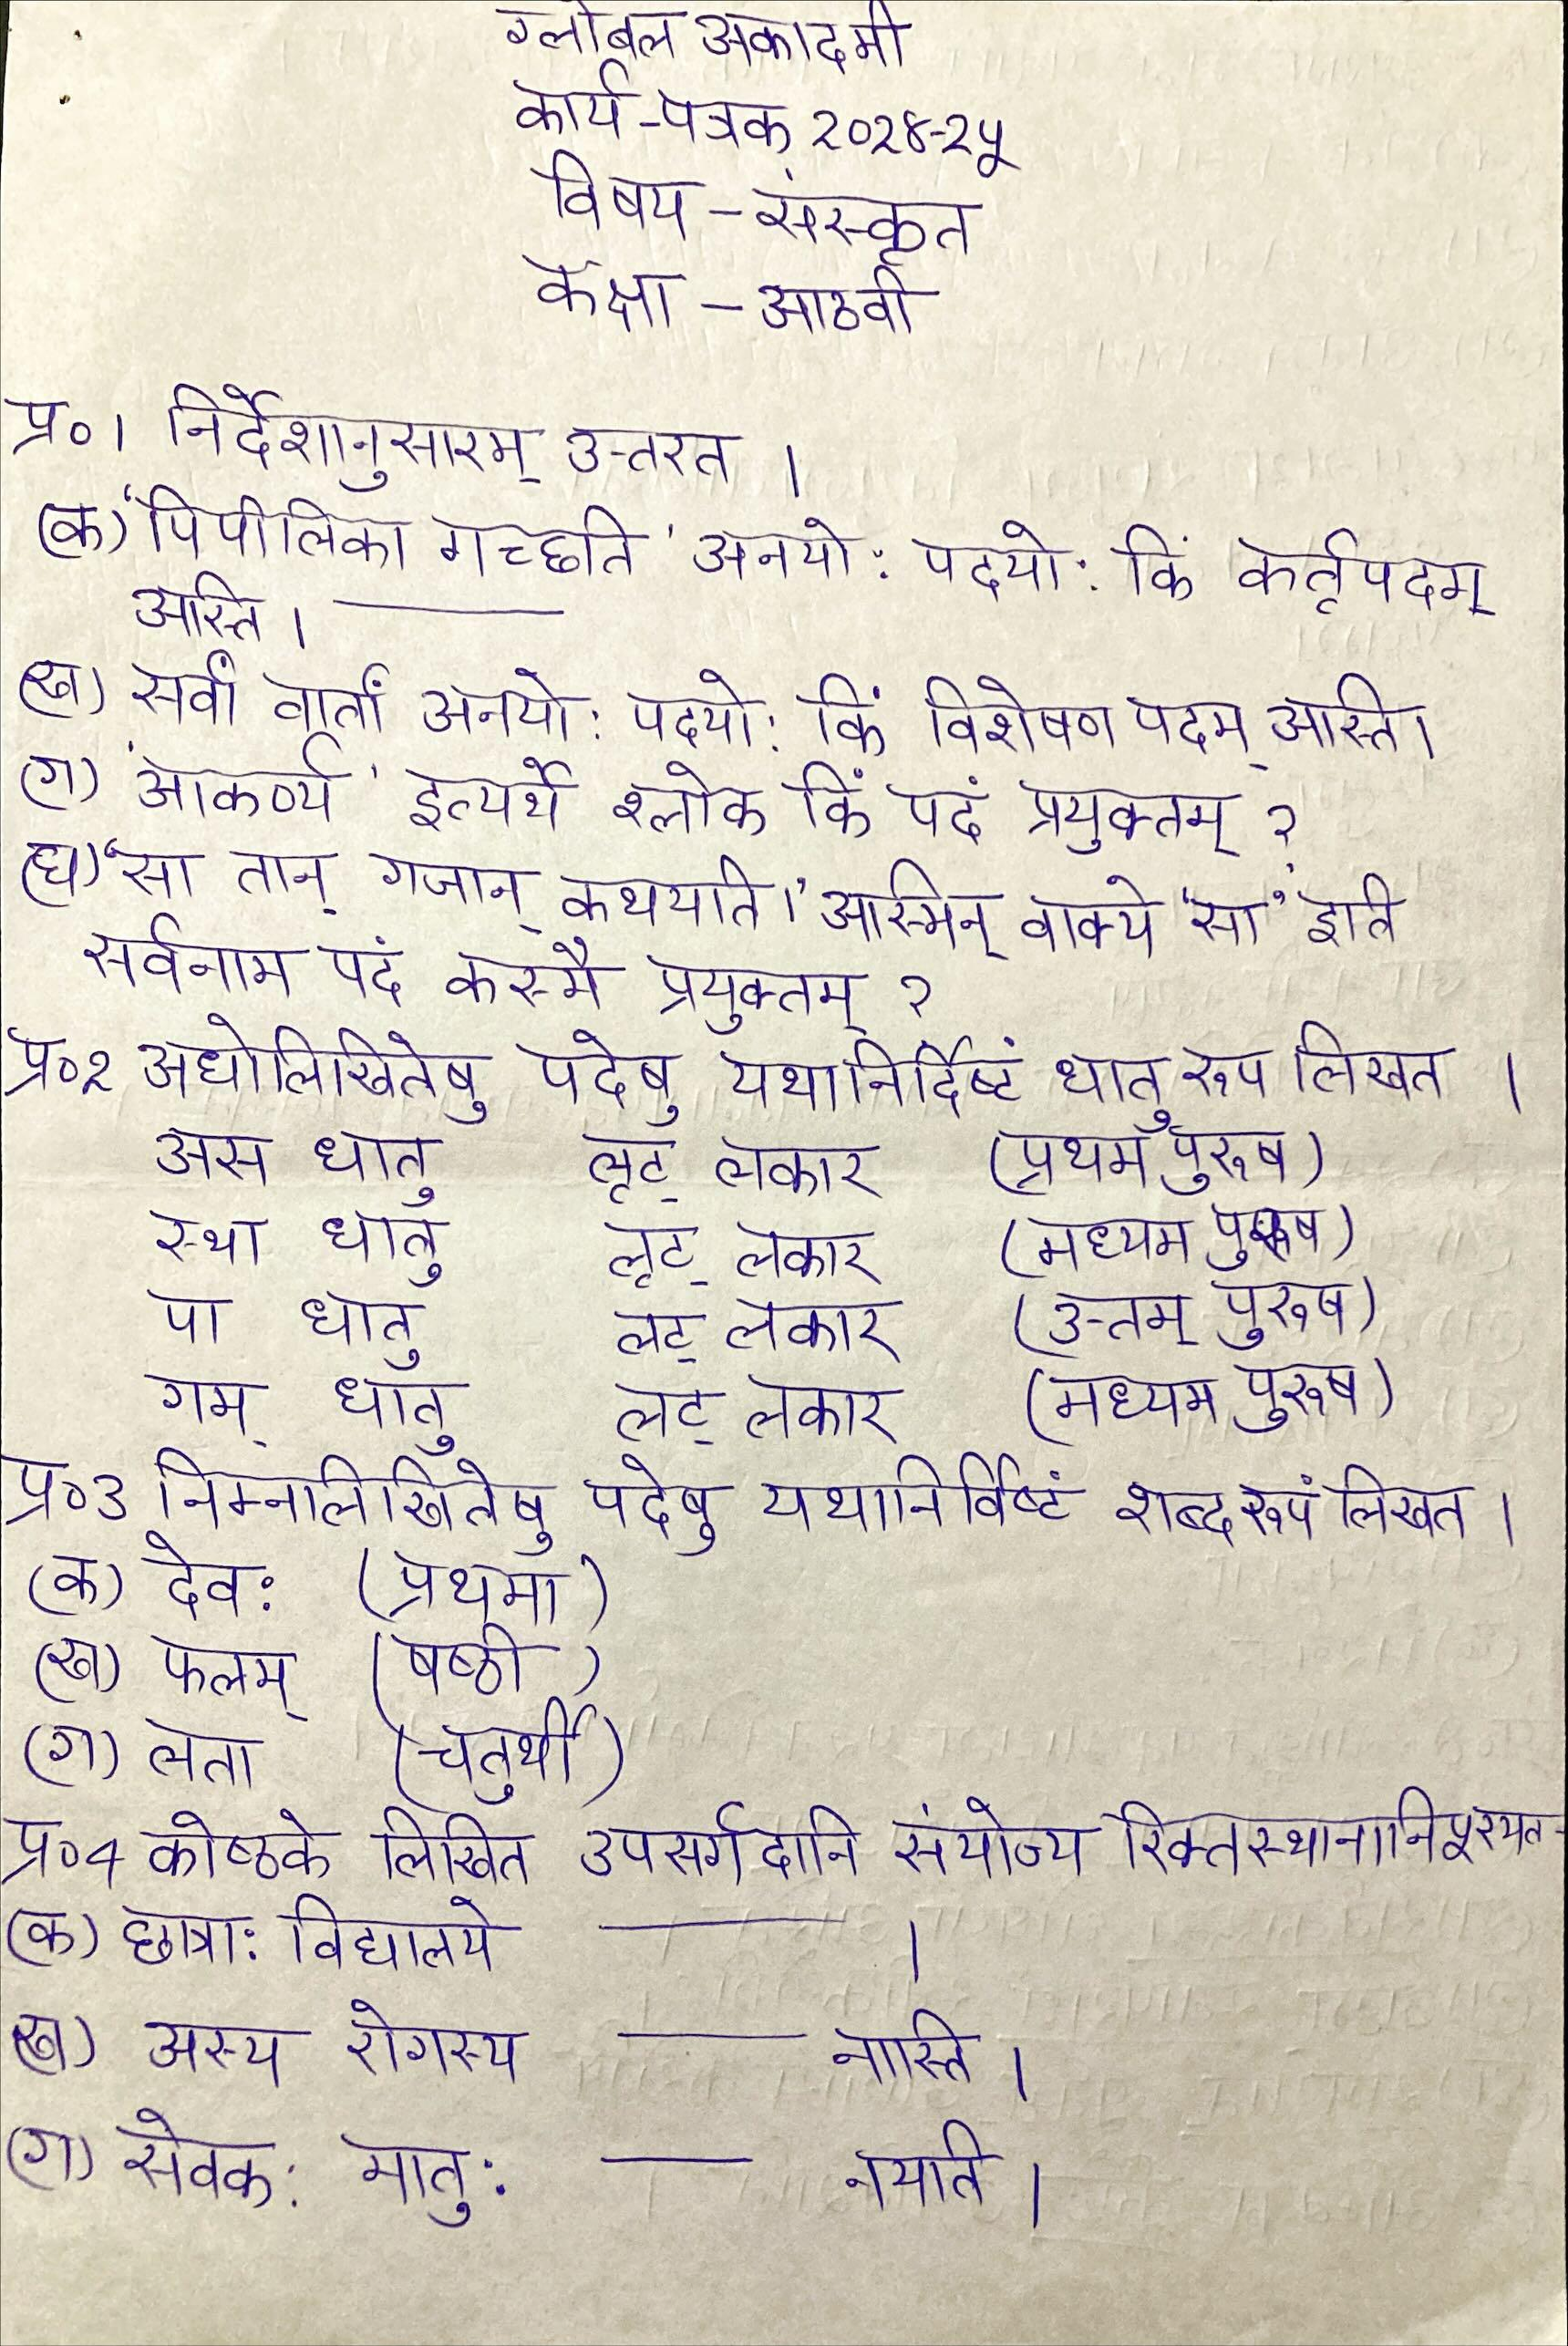 ग्लोबल अकादमी
कार्य-पत्रक २०२४-२५
विषय - संस्कृत
कक्षा - आठवीं
प्र०1 निर्देशानुसारम् उत्तरत ।
(क) 'पिपीलिका गच्छति' अनयो: पदयो: किं कर्तृपदम्
अस्ति । ———
(ख) सर्वां वार्तां अनयो: पदयो: किं विशेषण पदम् अस्ति।
(ग) 'आकर्ण्य' इत्यर्थे श्लोके किं पदं प्रयुक्तम् ?
(घ) 'सा तान् गजान् कथयति।' अस्मिन् वाक्ये 'सा' इति
सर्वनाम पदं कस्मै प्रयुक्तम् ?
प्र०२ अधोलिखितेषु पदेषु यथानिर्दिष्टं धातु रूप लिखत ।
अस धातु लृट् लकार (प्रथम पुरूष)
स्था धातु लृट् लकार (मध्यम पुरूष)
पा धातु लट् लकार (उत्तम् पुरूष)
गम् धातु लट् लकार (मध्यम पुरूष)
प्र०3 निम्नलिखितेषु पदेषु यथानिर्विष्टं शब्द रूपं लिखत ।
(क) देव: (प्रथमा)
(ख) फलम् (षष्ठी)
(ग) लता (चतुर्थी)
प्र०4 कोष्ठके लिखित उपसर्गदानि संयोज्य रिक्तस्थानानि पूरयत-
(क) छात्रा: विद्यालये ——— ।
(ख) अस्य रोगस्य ——— नास्ति ।
(ग) सेवक: मातु: ——— नयति ।